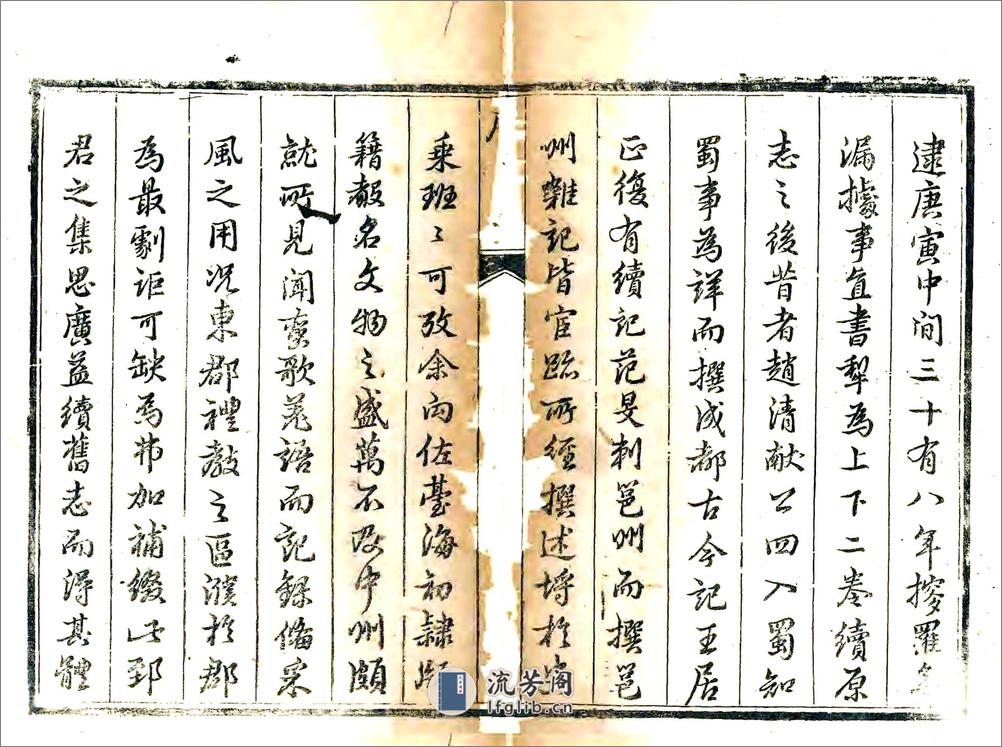 逮庚寅中间三十有八年搜羅
漏據事直書犁為上下二卷續原
志之後昔者趙清献公四入蜀知
蜀事為詳而撰成都古今記王居
正復有續記范旻刺邕州而撰邕
州雜記皆宦跡所經撰述埒於
乘班〻可攷余向佐臺海初隸
籍聲名文物之盛萬不及中州顧
就所見聞蛮歌羌語而記錄俻采
風之用况東郡禮教之區濮於郡
為最劇詎可缺焉弗加補綴此郅
君之集思廣益續舊志而得其體
流芳阁
lfglib.cn